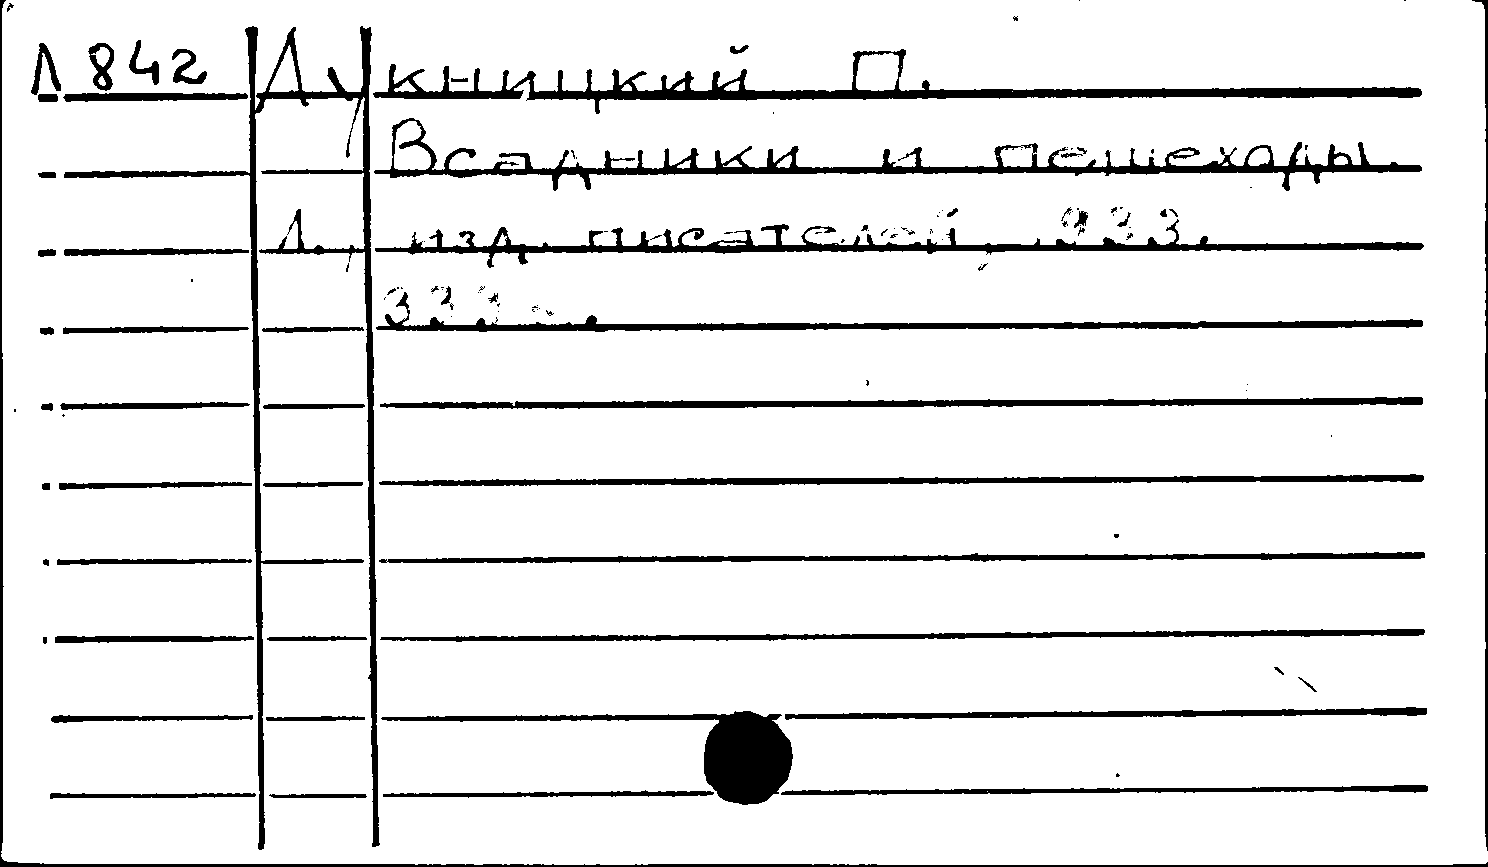 Л 842 Лукницкий П.
Всадники и пешеходы.
Л., изд. писателей, 933.
333 с.